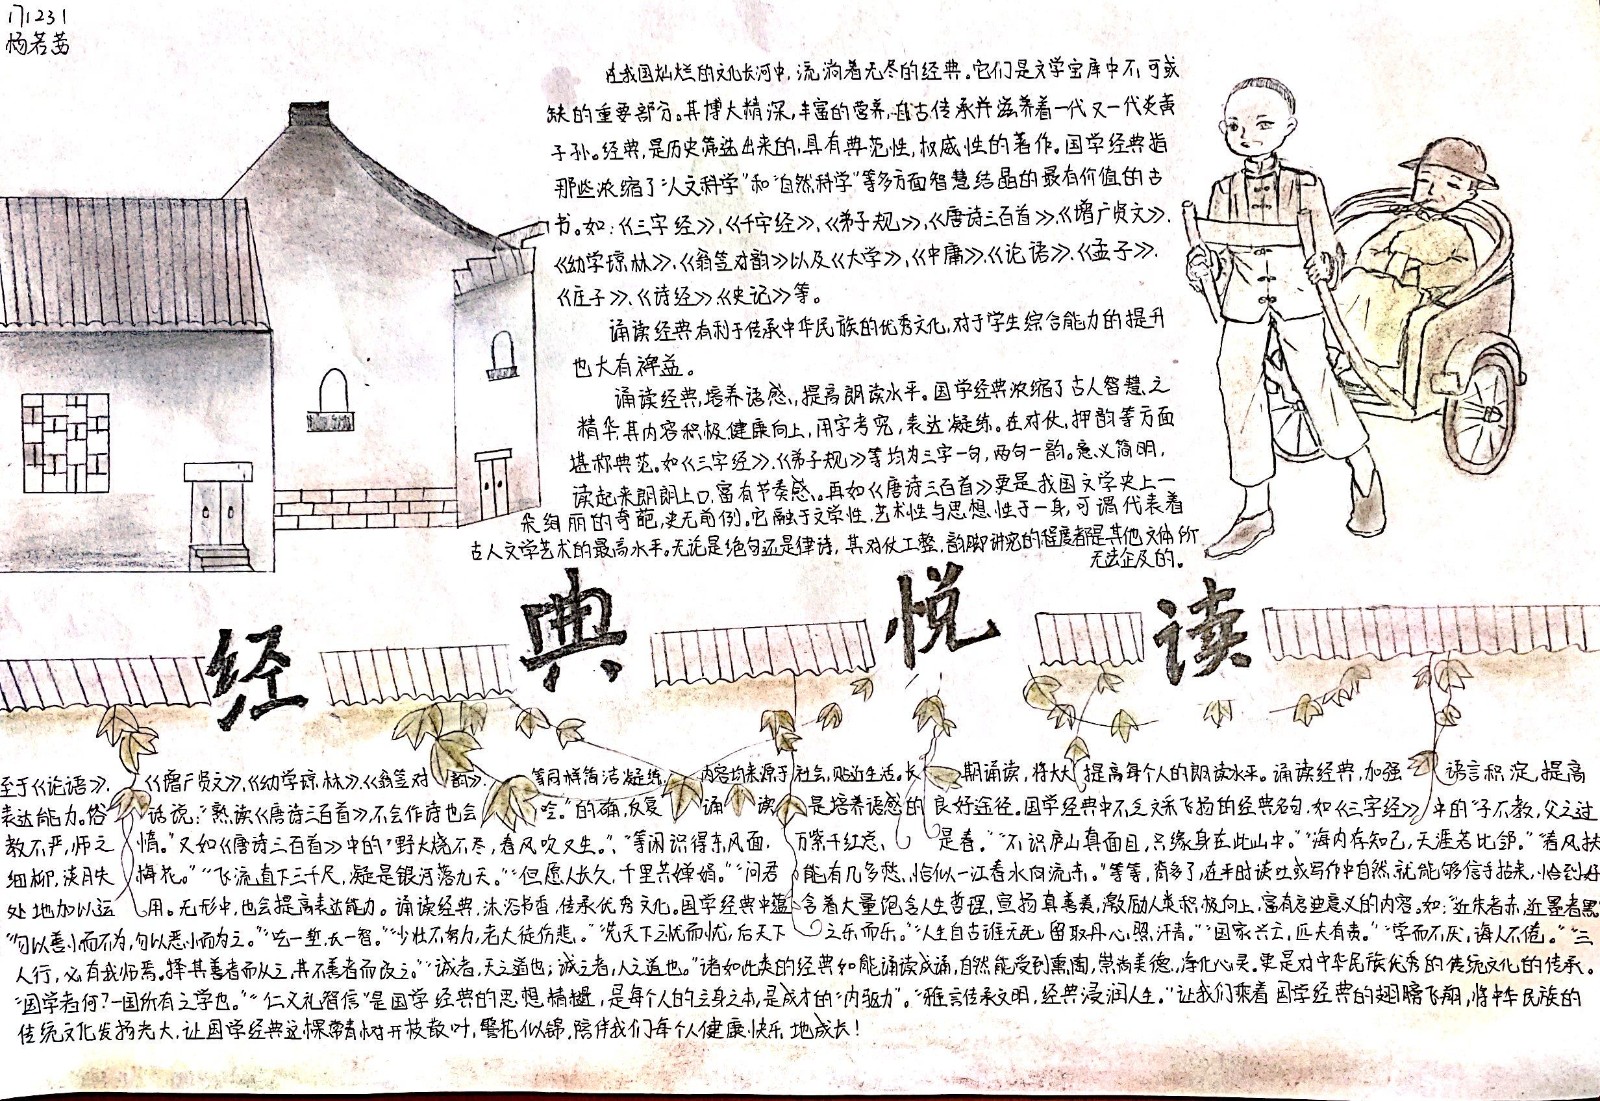 171231
杨若茜
在我国灿烂的文化长河中,流淌着无尽的经典。它们是文学宝库中不可或
缺的重要部分。其博大精深,丰富的营养,自古传承并滋养着一代又一代炎黄
子孙。经典,是历史筛选出来的,具有典范性,权威性的著作。国学经典指
那些浓缩了“人文科学”和“自然科学”等多方面智慧结晶的最有价值的古
书。如:《三字经》、《千字经》、《弟子规》、《唐诗三百首》、《增广贤文》、
《幼学琼林》、《翁笠对韵》以及《大学》、《中庸》、《论语》、《孟子》、
《庄子》、《诗经》、《史记》等。
诵读经典有利于传承中华民族的优秀文化,对于学生综合能力的提升
也大有裨益。
诵读经典,培养语感,提高朗读水平。国学经典浓缩了古人智慧之
精华,其内容积极健康向上,用字考究,表达凝练。在对仗,押韵等方面
堪称典范。如《三字经》、《弟子规》等均为三字一句,两句一韵。意义简明,
读起来朗朗上口,富有节奏感。再如《唐诗三百首》更是我国文学史上一
朵绚丽的奇葩,史无前例。它融于文学性、艺术性与思想性于一身,可谓代表着
古人文学艺术的最高水平。无论是绝句还是律诗,其对仗工整,韵脚讲究的程度都是其他文体所
无法企及的。
经典悦读
至于《论语》、《增广贤文》、《幼学琼林》、《翁笠对韵》、等同样简洁凝练,内容均来源于社会,贴近生活。长期诵读,将大大提高每个人的朗读水平。诵读经典,加强语言积淀,提高
表达能力。俗话说:“熟读《唐诗三百首》,不会作诗也会吟。”的确,反复诵读是培养语感的良好途径。国学经典中不乏文采飞扬的经典名句,如《三字经》中的“子不教,父之过
教不严,师之惰。”又如《唐诗三百首》中的“野火烧不尽,春风吹又生。”、“等闲识得东风面,万紫千红总是春。”“不识庐山真面目,只缘身在此山中。”“海内存知己,天涯若比邻。”“春风扶
细柳,淡月失梅花。”“飞流直下三千尺,疑是银河落九天。”“但愿人长久,千里共婵娟。”“问君能有几多愁,恰似一江春水向流东。”等等,背多了,在平时谈吐或写作中自然就能够信手拈来,恰到好
处地加以运用。无形中,也会提高表达能力。诵读经典,沐浴书香,传承优秀文化。国学经典中蕴含着大量饱含人生哲理,宣扬真善美,激励人类积极向上,富有启迪意义的内容。如:“近朱者赤,近墨者黑”
“勿以善小而不为,勿以恶小而为之。”“吃一堑,长一智。”“少壮不努力,老大徒伤悲。”“先天下之忧而忧,后天下之乐而乐。”“人生自古谁无死,留取丹心照汗青。”“国家兴亡,匹夫有责。”“学而不厌,诲人不倦。”“三
人行,必有我师焉。择其善者而从之,其不善者而改之。”“诚者,天之道也;诚之者,人之道也。”诸如此类的经典如能诵读成诵,自然能受到熏陶,崇尚美德,净化心灵。更是对中华民族优秀的传统文化的传承。
“国学者何?一国所有之学也。”“仁义礼智信”是国学经典的思想精髓,是每个人的立身之本,是成才的“内驱力”。“雅言传承文明,经典浸润人生。”让我们乘着国学经典的翅膀飞翔,将中华民族的
传统文化发扬光大,让国学经典这棵常青树开枝散叶,繁花似锦,陪伴我们每个人健康快乐地成长!